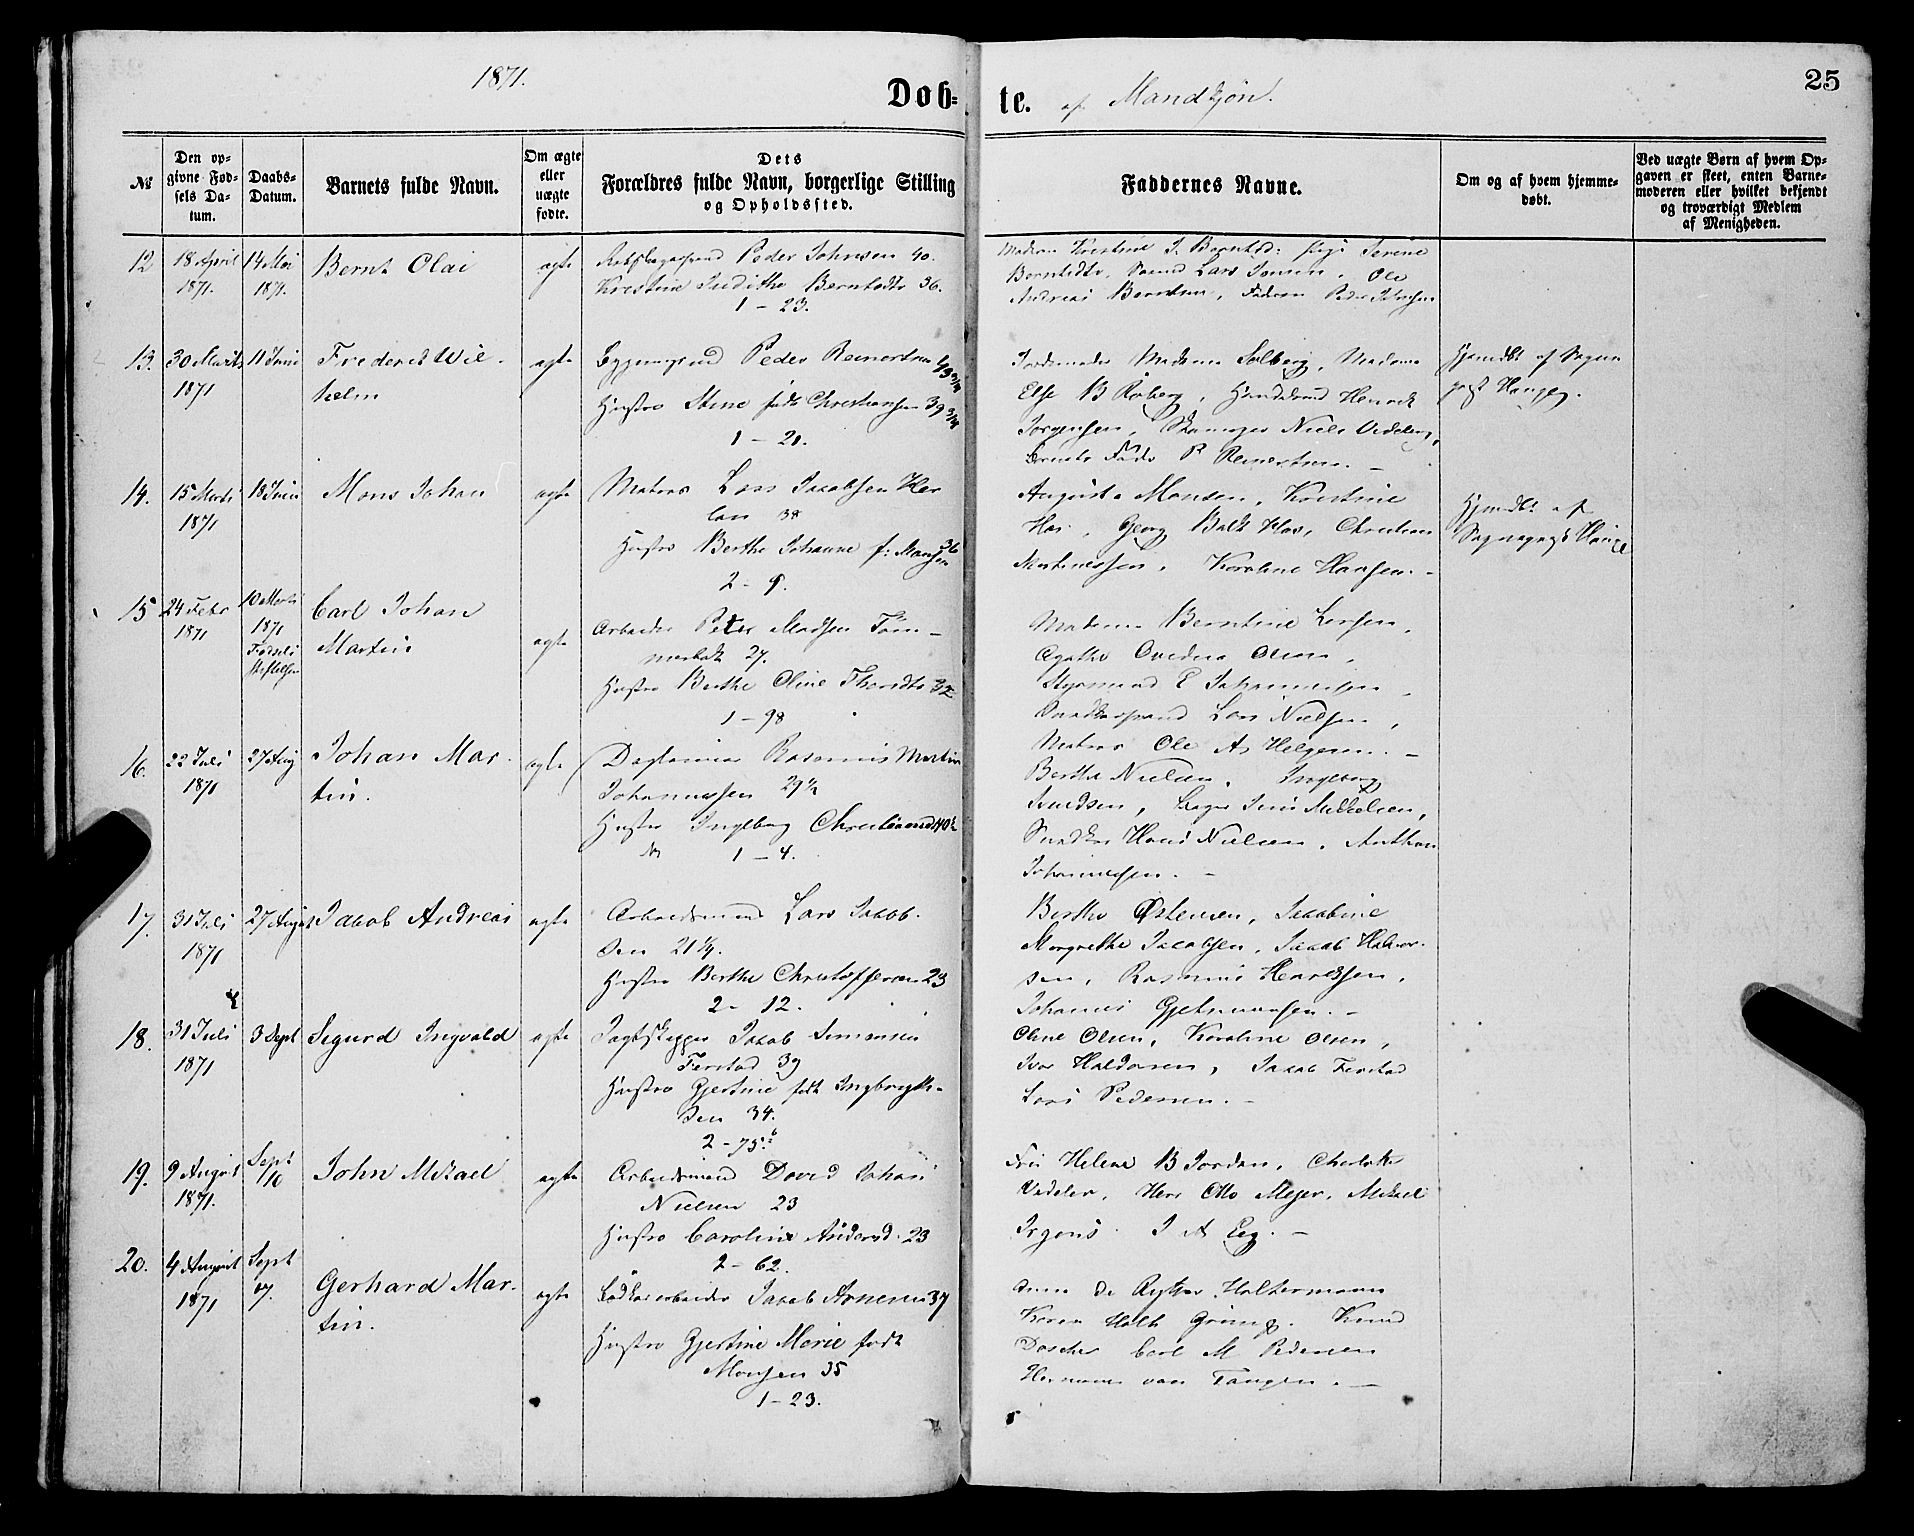 1871.
Døb=
te. af Mandkjøn.
25
№
Den op-
givne Fød-
sels Da-
tum.
Daabs-
Datum.
Barnets fulde Navn.
Om ægte
eller
uægte
fødte.
Dets
Forældres fulde Navn, borgerlige Stilling
og Opholdssted.
Faddernes Navne.
Om og af hvem hjemme-
døbt.
Ved uægte Børn af hvem Op-
gaven er skeet, enten Barne-
moderen eller hvilket bekjendt
og troværdigt Medlem
af Menigheden.
12
18 April
1871.
14 Mai
1871.
Bernt Olai
ægte
Peder Johnsen 40.
Kristine Judithe Berntsdtr 36.
1 – 23.
Madam Kristine J. Berntsd: pige Serine
Berntsdtr, Lars Jonsen, Ole
Andreas Berntsen, Faderen Peder Johnsen
13.
30 Marts
1871
11 Juni
Frederik Wil-
helm
ægte
Peder Reinertsen
Hustro Stine født Christensen 39
1 – 21.
Jordemoder Madame Solberg, Madame
Else B Roberg, Henrik
Jorgensen, Niels Vedeler,
Barnets Fader P Reinertsen. –
Hjemdbt af Sogne
prest Hauge.
14.
15 Marts
1871
18 Juni
Mons Johan
ægte
Matros Lars Jacobsen
38
Hustro Berthe Johanne f: Monsen 36
2 – 9.
Augusta Monsen, Kristine
Has, Georg Balk Has, Christian
Martinessen, Karoline Hansen. –
Hjemdbt af
Sogneprest Hauge
15
24 Febr
1871
10 Marts
1871
Fødsels
stiftelsen
Carl Johan
Martin
ægte
Arbeider Peter Madsen Tøm-
27.
Hustro Berthe Oline 32
1 – 98
Madame Berntine Larsen,
Agathe Olsen,
Styrmand E Johannesen,
Lars Nielsen,
Matros Ole As Helgesen. –
16.
22 Juli
1871
27 Aug
Johan Mar-
tin.
ægte
Rasmus Martin
Johannessen 29½
Hustro Ingeborg Christiansd 40½
1 – 4.
Berthe Nielsen, Ingeborg
Knudsen, Jens Mikkelsen,
Hans Nielsen, Anthon
Johannesen. –
17.
31 Juli
1871
27 August
Jacob Andreas
ægte
Arbeidsmand Lars Jacob-
sen 21¼.
Hustro Berthe Christoffersen 23
2 – 12.
Berthe Østensen, Jacobine
Margrethe Jacobsen, Jacob Halvor-
sen, Rasmus Henriksen,
Johannes Gjertmundsen. –
18.
31 Juli
1871
3 Sept
Sigurd Ingvald
ægte
Jagtskipper Jacob Simonsen
Ferstad 39
Hustro Gjertine født Ingbrigt-
sen 34.
2 – 75
Oline Olsen, Karoline Olsen,
Iver Haldorsen, Jacob Ferstad
Lars Pedersen. –
19.
9 August
1871.
Sept
10
John Mikael
ægte
Arbeidsmand David Johan
Nielsen 23
Hustro Caroline Andersd. 23
2 – 62.
Fru Helene B Jordan, Charlotte
Vedeler, Herr Otto Meyer, Mikael
Irgens. J A Eeg. –
20.
4 August
1871
Sept
17.
Gerhard Mar-
tin.
ægte
Bødkerarbeider Jacob Arnesen 37
Hustro Gjertine Marie født
Monsen 35
1 – 23.
Anna De Rytter Holtermann
Karen Holk Grüning. Knud
Carl M Pedersen
Hermann van Tangen. –